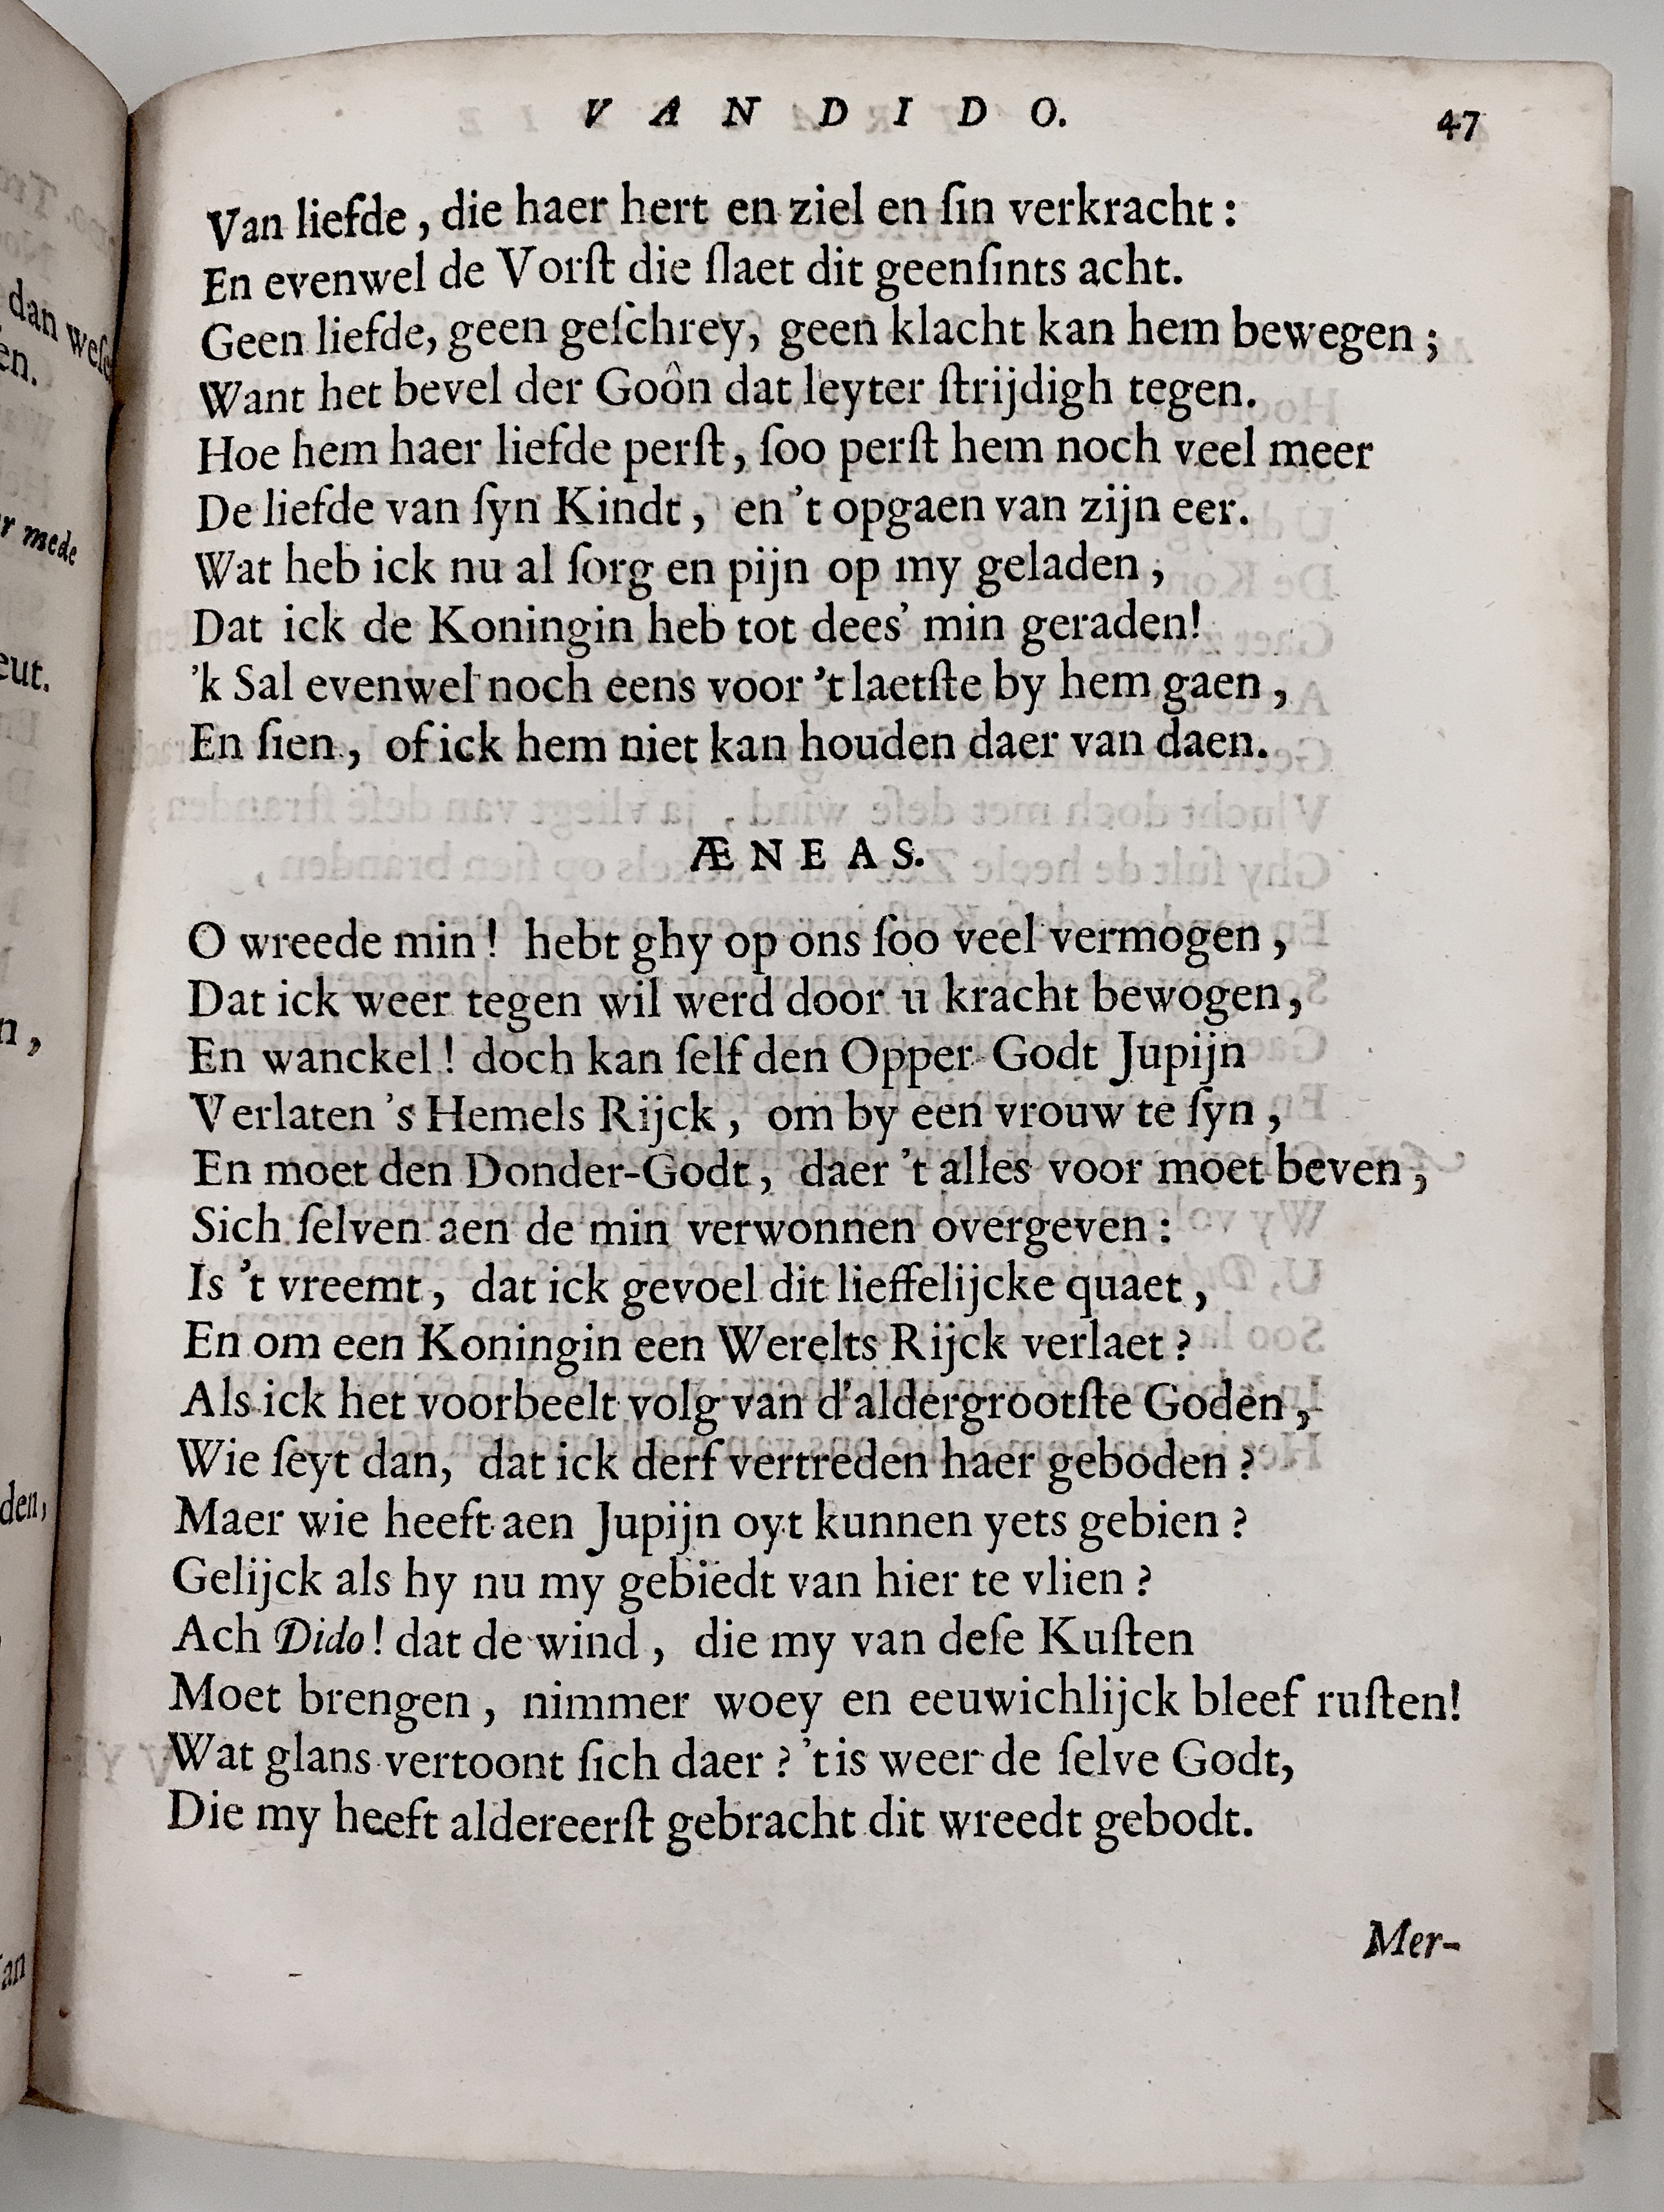 VAN DIDO. 47
Van liefde, die haer hert en ziel en ſin verkracht:
En evenwel de Vorſt die ſlaet dit geenſints acht.
Geen liefde, geen geſchrey, geen klacht kan hem bewegen;
Want het bevel der Goôn dat leyter ſtrijdigh tegen.
Hoe hem haer liefde perſt, ſoo perſt hem noch veel meer
De liefde van ſyn Kindt, en 't opgaen van zijn eer.
Wat heb ick nu al ſorg en pijn op my geladen,
Dat ick de Koningin heb tot dees' min geraden!
'k Sal evenwel noch eens voor 't laetſte by hem gaen,
En ſien, of ick hem niet kan houden daer van daen.
ÆNEAS.
O wreede min! hebt ghy op ons ſoo veel vermogen,
Dat ick weer tegen wil werd door u kracht bewogen,
En wanckel! doch kan ſelf den Opper-Godt Jupijn
Verlaten 's Hemels Rijck, om by een vrouw te ſyn,
En moet den Donder-Godt, daer 't alles voor moet beven,
Sich ſelven aen de min verwonnen overgeven:
Is 't vreemt, dat ick gevoel dit lieffelijcke quaet,
En om een Koningin een Werelts Rijck verlaet?
Als ick het voorbeelt volg van d'aldergrootſte Goden,
Wie ſeyt dan, dat ick derf vertreden haer geboden?
Maer wie heeft aen Jupijn oyt kunnen yets gebien?
Gelijck als hy nu my gebiedt van hier te vlien?
Ach Dido! dat de wind, die my van deſe Kuſten
Moet brengen, nimmer woey en eeuwichlijck bleef ruſten!
Wat glans vertoont ſich daer? 't is weer de ſelve Godt,
Die my heeft aldereerſt gebracht dit wreedt gebodt.
Mer-